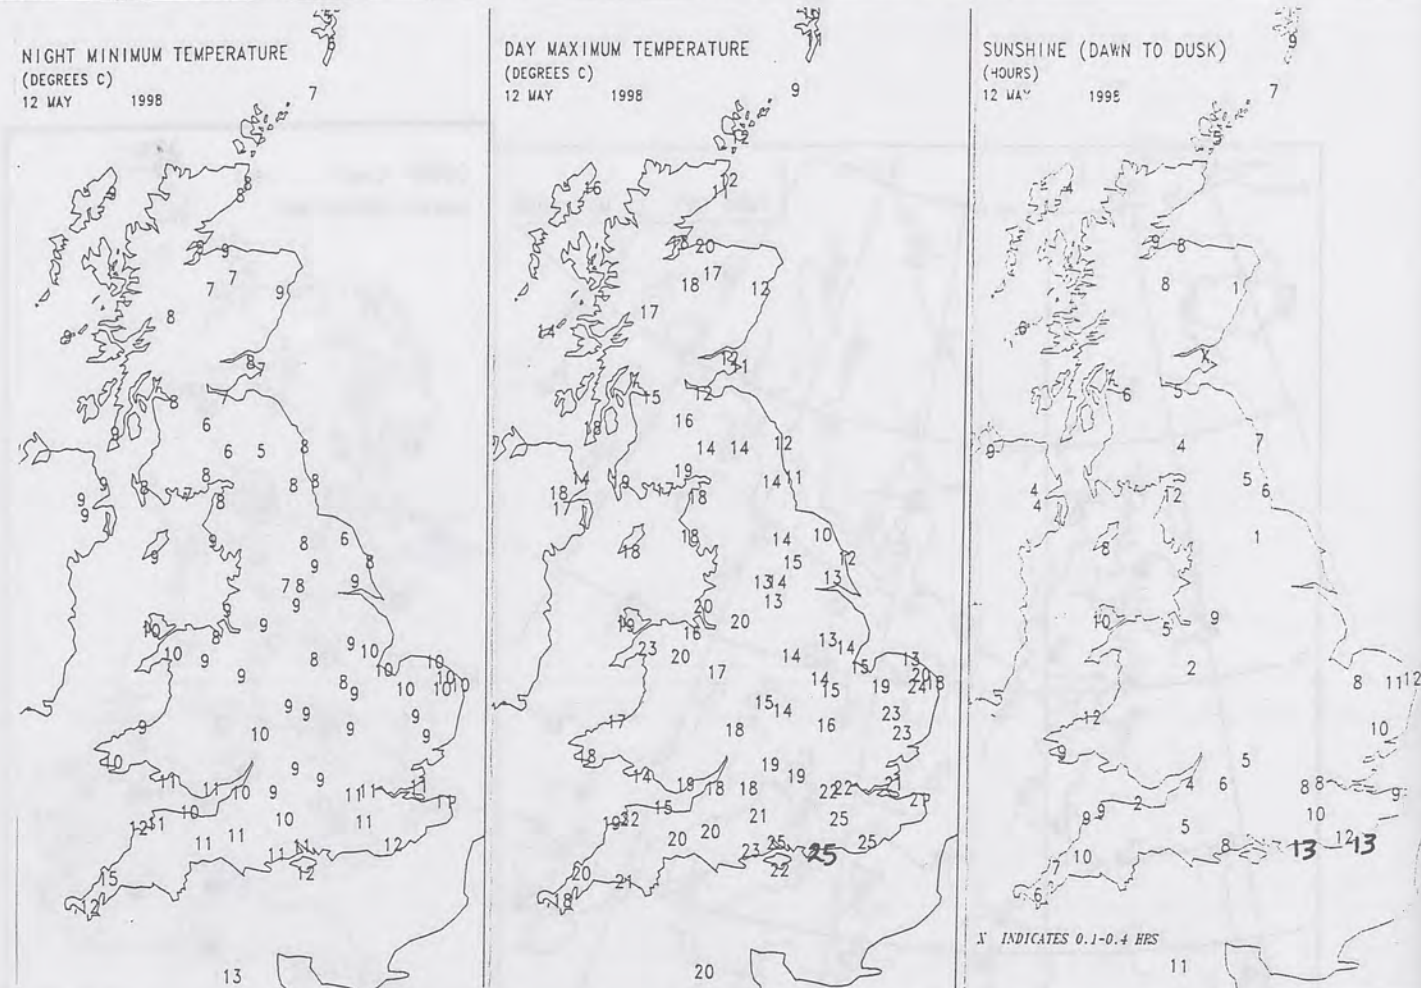 NIGHT MINIMUM TEMPERATURE
(DEGREES C)
12 MAY 1998
7
8
8
9
7
7
9
8
8
7
8
6
6
5
8
8
8
9
9
8
8
8
9
9
8
6
9
8
9
7 8
9
9
9
8
10
9
8
9 10
10
10
9
8
9
10
10
10
9
9
9
9
9
10
9
9
10
9
9
9
11
11
10
10
11
11
12
10
11
11
11
12
12
15
12
13
DAY MAXIMUM TEMPERATURE
(DEGREES C)
12 MAY 1998
9
12
16
20
17
18
12
17
14
12
15
12
16
18
14 14
12
19
14
14
11
18
17
18
18
14
10
18
15
12
13 14
13
13
20
20
16
23
20
17
14
13
14
15
13
14
15
19
20
24
18
15
14
17
18
16
23
23
18
14
19
18
19
19
18
22
22
15
21
25
20
20
23
25
25
25
22
20
21
18
20
SUNSHINE (DAWN TO DUSK)
(HOURS)
12 MAY
9
7
4
8
8
1
6
X
6
5
4
7
4
4
12
5
6
8
1
10
5
9
2
8
11
12
12
10
9
5
4
6
8
8
9
2
9
9
5
10
12
8
13
13
10
7
6
X INDICATES 0.1-0.4 HRS
11